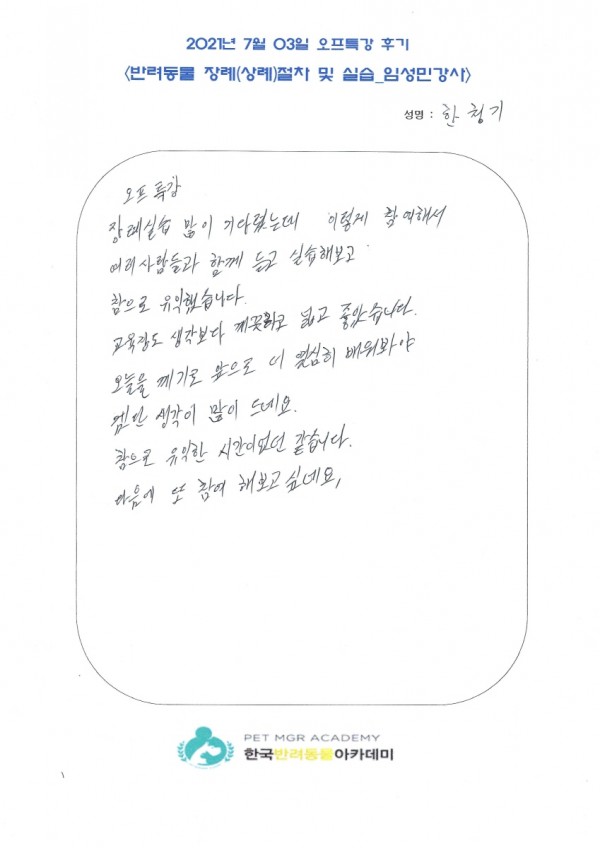 2021년 7월 03일 오프특강 후기
<반려동물 장례(상례)절차 및 실습_임성민강사>
성명 : 한청기
오프특강
장례실습 많이 기다렸는데 이렇게 참여해서
여러사람들과 함께 듣고 실습해보고
참으로 유익했습니다.
교육장도 생각보다 깨끗하고 넓고 좋았습니다.
오늘을 계기로 앞으로 더 열심히 배워봐야
겠단 생각이 많이 드네요.
참으로 유익한 시간이었던 같습니다.
다음에 또 참여 해보고 싶네요,
PET MGR ACADEMY
한국반려동물아카데미